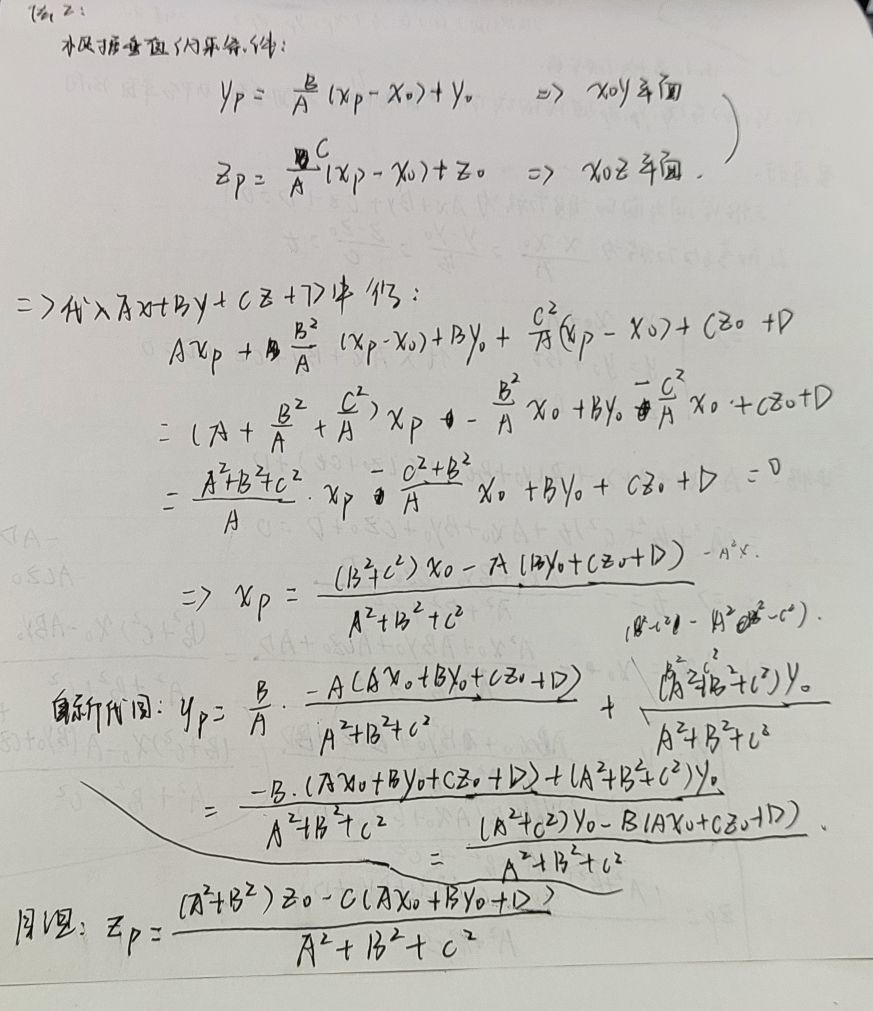 法2:
根据垂直约束条件:
y_p = B/A (x_p - x_0) + y_0 => xoy平面
z_p = C/A (x_p - x_0) + z_0 => xoz平面.
=> 代入Ax+By+Cz+D中得:
Ax_p + B²/A (x_p - x_0) + By_0 + C²/A (x_p - x_0) + Cz_0 + D
= (A + B²/A + C²/A) x_p - B²/A x_0 + By_0 - C²/A x_0 + Cz_0 + D
= (A²+B²+C²)/A · x_p - (C²+B²)/A x_0 + By_0 + Cz_0 + D = 0
=> x_p = ((B²+C²)x_0 - A(By_0+Cz_0+D))/(A²+B²+C²) - A²x.
y_p = B/A · (-A(Ax_0+By_0+Cz_0+D))/(A²+B²+C²) + ((A²+B²+C²)y_0)/(A²+B²+C²)
= (-B·(Ax_0+By_0+Cz_0+D)+(A²+B²+C²)y_0)/(A²+B²+C²)
= ((A²+C²)y_0 - B(Ax_0+Cz_0+D))/(A²+B²+C²).
同理: z_p = ((A²+B²)z_0 - C(Ax_0+By_0+D))/(A²+B²+C²)